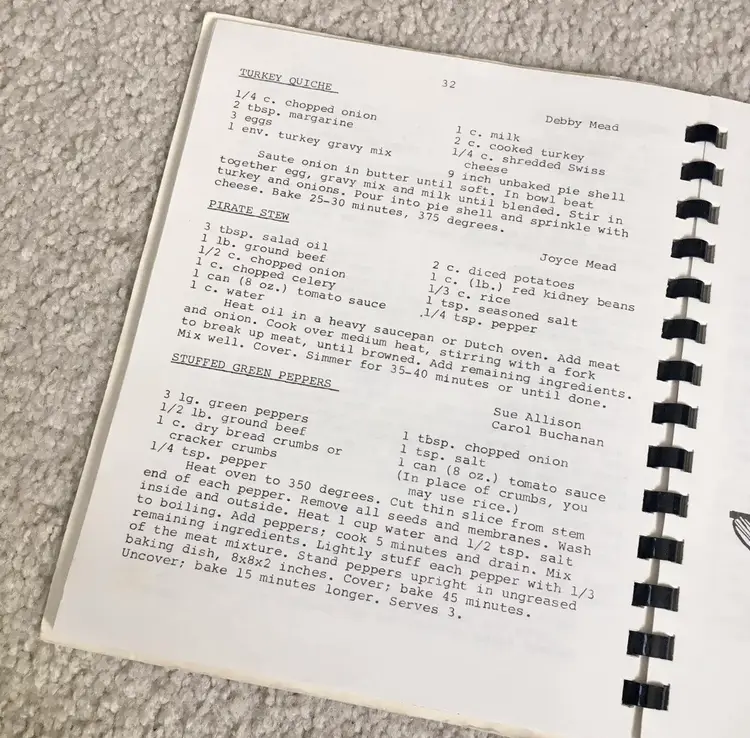 32
TURKEY QUICHE
Debby Mead
1/4 c. chopped onion
2 tbsp. margarine
3 eggs
1 env. turkey gravy mix
1 c. milk
2 c. cooked turkey
1/4 c. shredded Swiss
cheese
9 inch unbaked pie shell
Saute onion in butter until soft. In bowl beat
together egg, gravy mix and milk until blended. Stir in
turkey and onions. Pour into pie shell and sprinkle with
cheese. Bake 25-30 minutes, 375 degrees.
PIRATE STEW
Joyce Mead
3 tbsp. salad oil
1 lb. ground beef
1/2 c. chopped onion
1 c. chopped celery
1 can (8 oz.) tomato sauce
1 c. water
2 c. diced potatoes
1 c. (lb.) red kidney beans
1/3 c. rice
1 tsp. seasoned salt
1/4 tsp. pepper
Heat oil in a heavy saucepan or Dutch oven. Add meat
and onion. Cook over medium heat, stirring with a fork
to break up meat, until browned. Add remaining ingredients.
Mix well. Cover. Simmer for 35-40 minutes or until done.
STUFFED GREEN PEPPERS
Sue Allison
Carol Buchanan
3 lg. green peppers
1/2 lb. ground beef
1 c. dry bread crumbs or
cracker crumbs
1/4 tsp. pepper
1 tbsp. chopped onion
1 tsp. salt
1 can (8 oz.) tomato sauce
(In place of crumbs, you
may use rice.)
Heat oven to 350 degrees. Cut thin slice from stem
end of each pepper. Remove all seeds and membranes. Wash
inside and outside. Heat 1 cup water and 1/2 tsp. salt
to boiling. Add peppers; cook 5 minutes and drain. Mix
remaining ingredients. Lightly stuff each pepper with 1/3
of the meat mixture. Stand peppers upright in ungreased
baking dish, 8x8x2 inches. Cover; bake 45 minutes.
Uncover; bake 15 minutes longer. Serves 3.